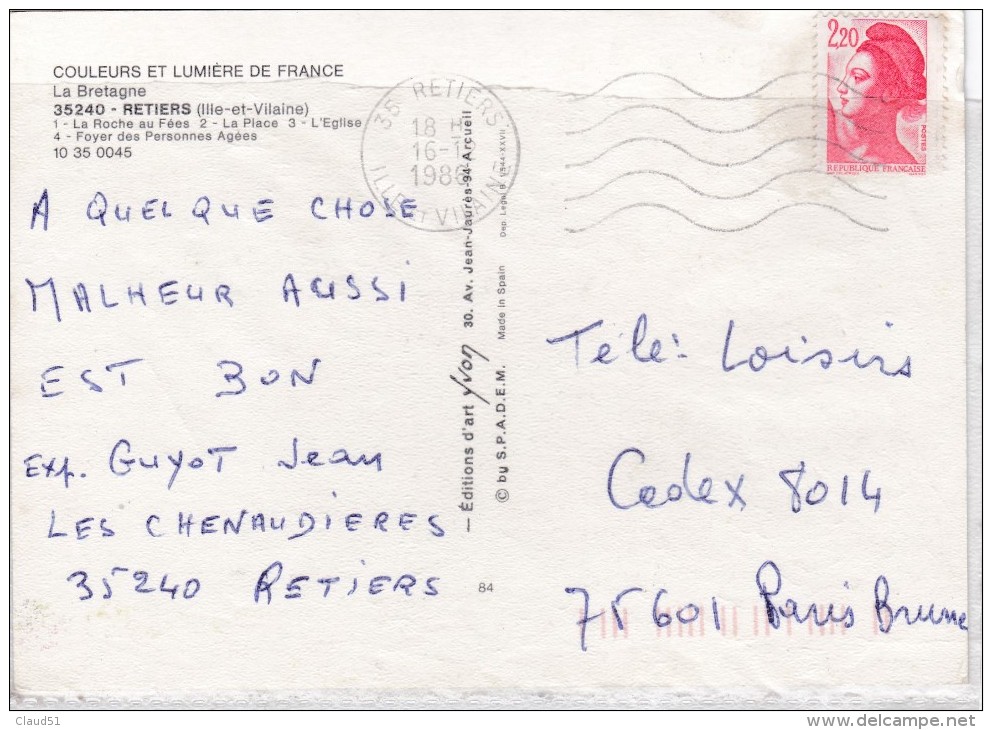 COULEURS ET LUMIÈRE DE FRANCE
La Bretagne
35240 - RETIERS (Ille-et-Vilaine)
1 - La Roche au Fées 2 - La Place 3 - L'Eglise
4 - Foyer des Personnes Agées
10 35 0045
35 RETIERS
18 H
16-1
1986
ILLE ET VILAINE
2,20
POSTES
REPUBLIQUE FRANCAISE
A QUELQUE CHOSE
MALHEUR AUSSI
EST BON
Exp. GUYOT Jean
LES CHENAUDIERES
35240 RETIERS
— Éditions d'art yvon 30. Av. Jean-Jaurès-94-Arcueil
© by S.P.A.D.E.M. Made in Spain Dep. Legal B.
84
Télé: Loisirs
Cedex 8014
75601 Paris Brune
Claud51
www.delcampe.net